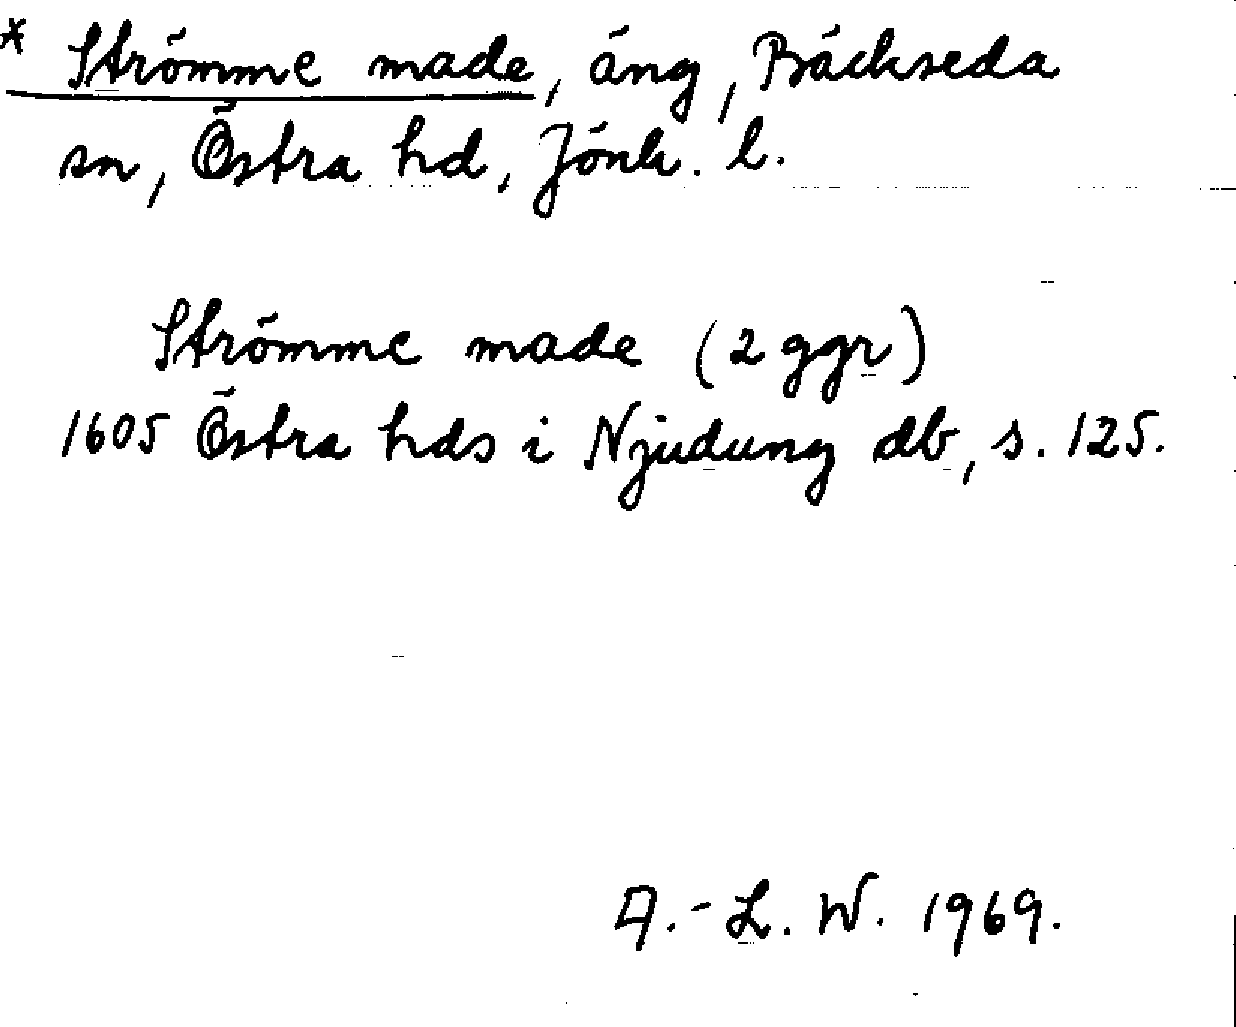 * Strömme made, äng, Bäckseda
sn, Östra hd, Jönk. l.
Strömme made (2 ggr)
1605 Östra hds i Njudung db, s. 125.
A.-L. W. 1969.